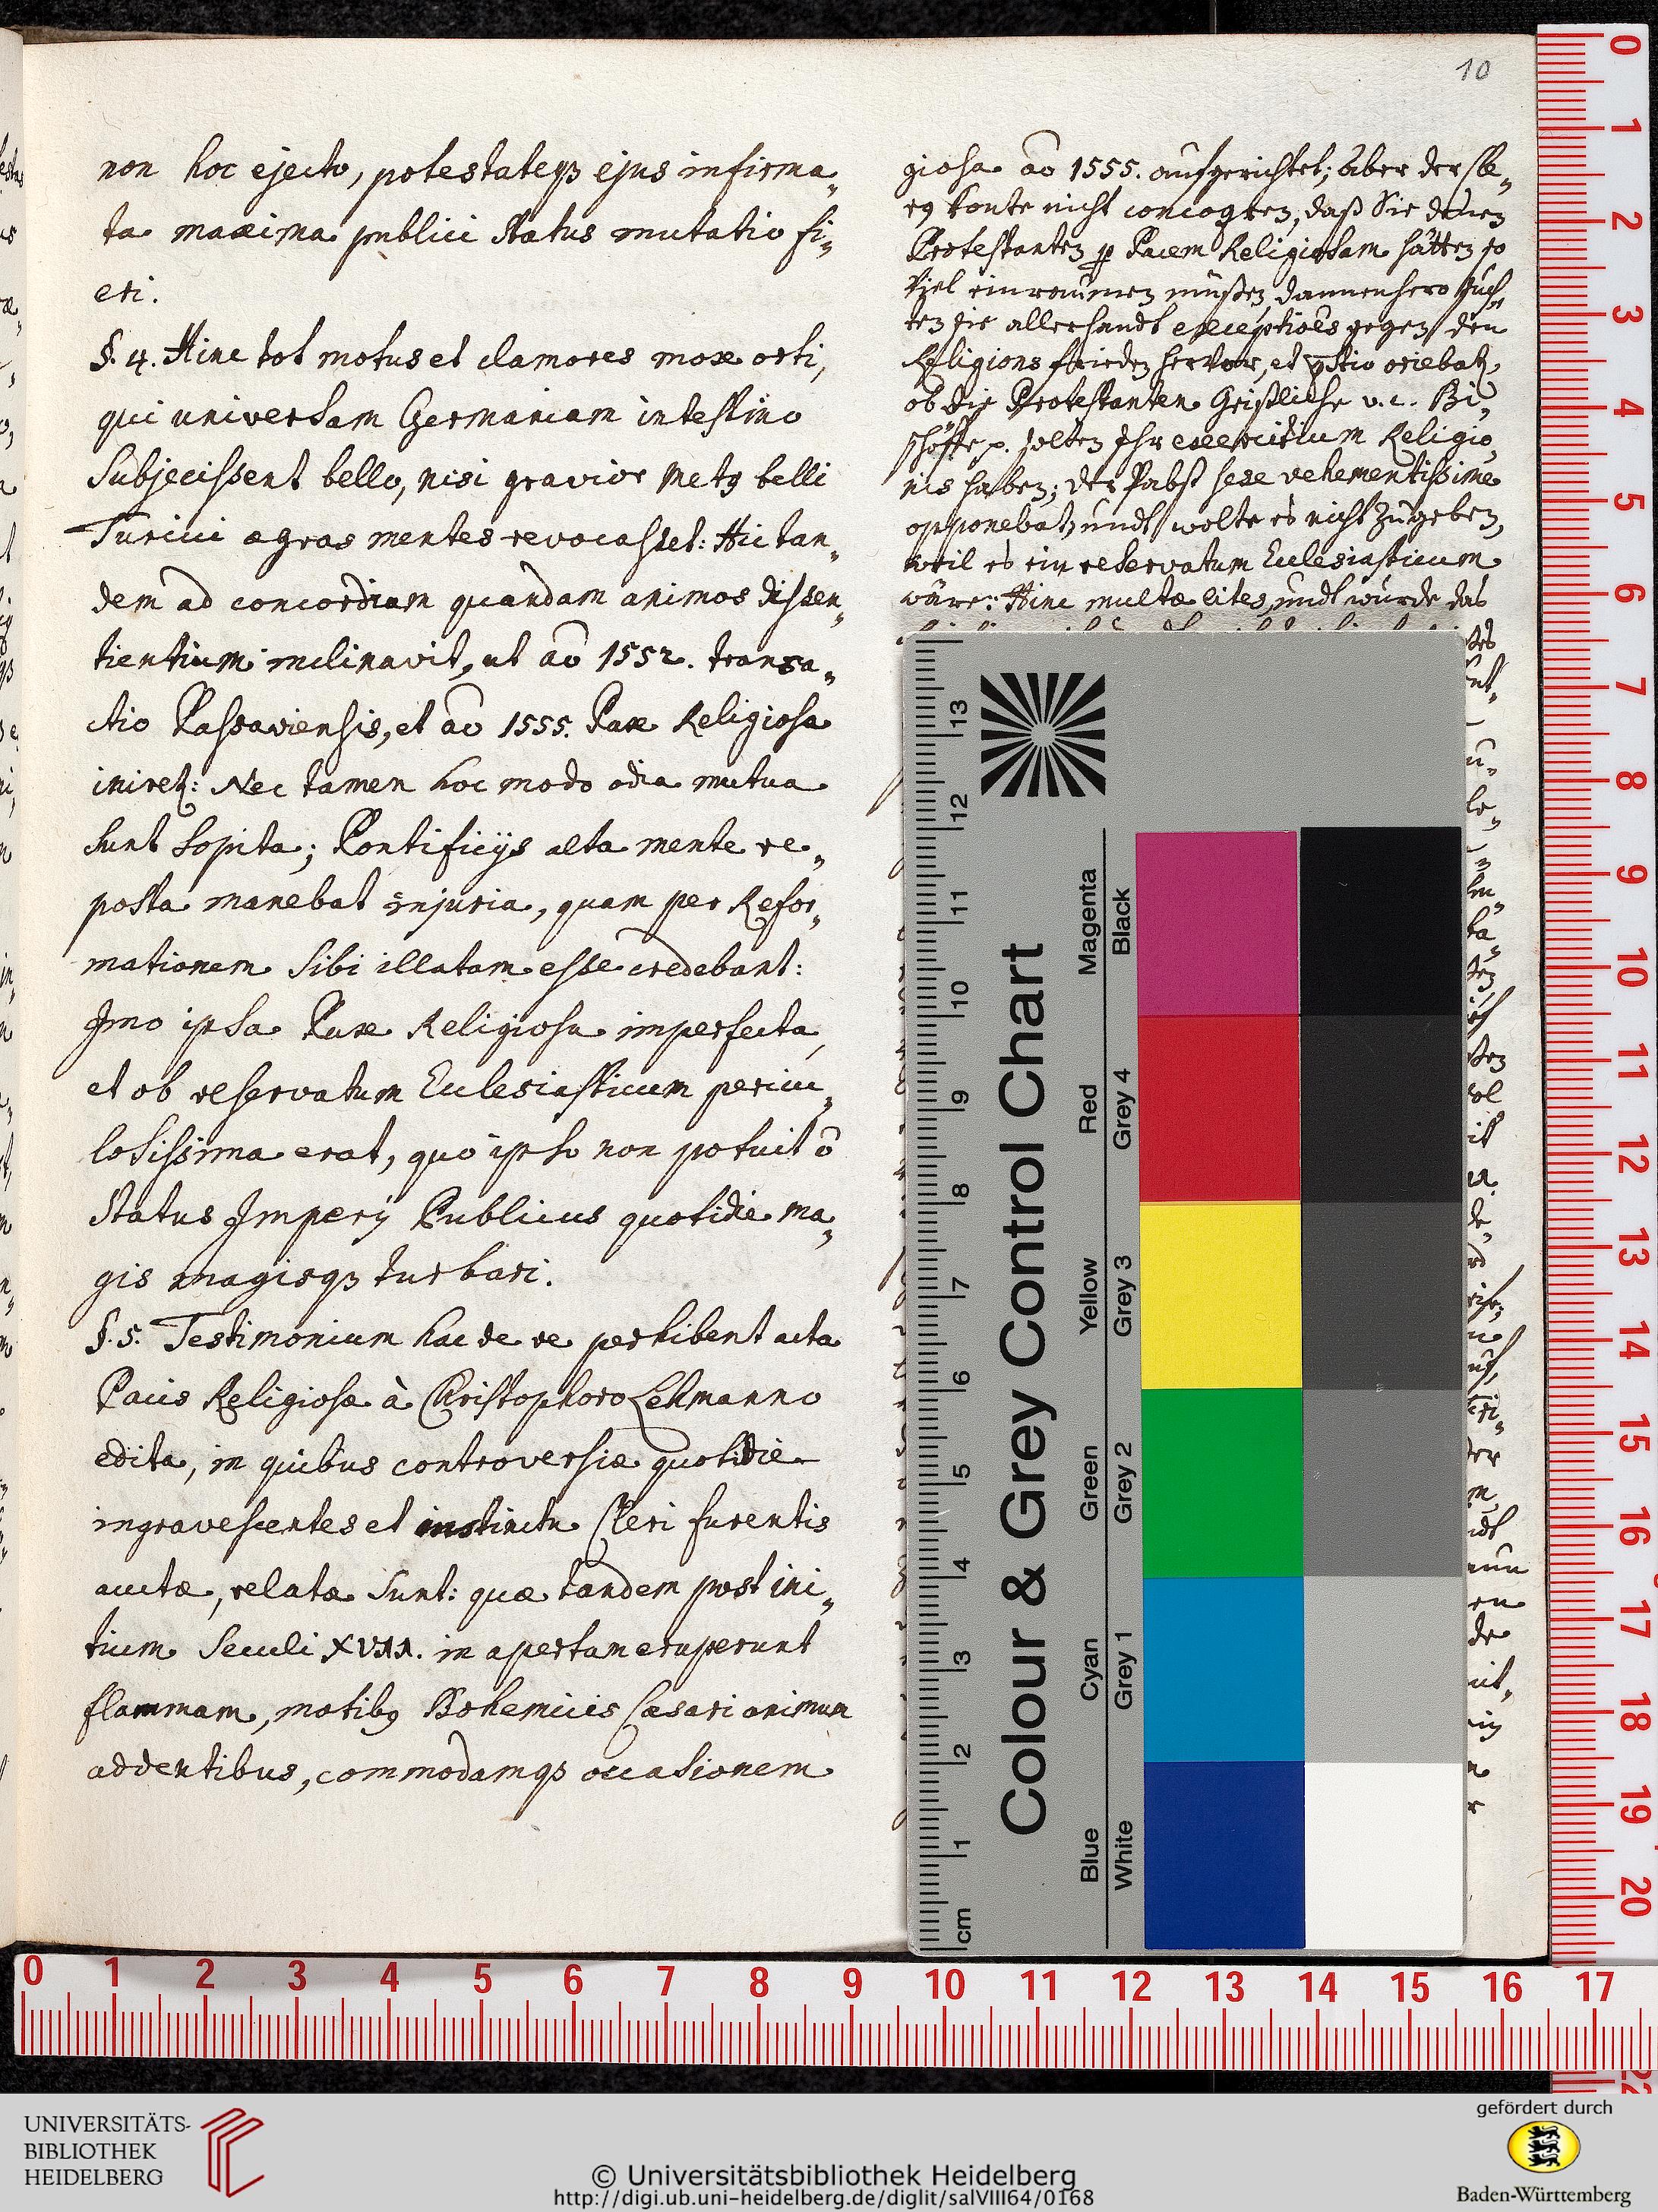 10
non hoc ejecto, potestateqȝ ejus infirma„
ta maxima publici Status mutatio fi„
eri.
§. 4. Hinc tot motus et clamores mox orti,
qui universam Germaniam intestino
Subjecissent bello, nisi gravior metꝯ belli
Turcici ægras mentes revocasset: Hic tan„
dem ad concordiam quandam animos dissen„
tientium inclinavit, ut aō 1552. transa„
ctio Passaviensis, et aō 1555. Pax Religiosa
iniret: Nec tamen hoc modo odia mutua
sunt sopita; Pontificijs alta mente re„
posta manebat injuria, quam per Refor„
mationem Sibi illatam esse credebant:
Imo ipsa Pax Religiosa imperfecta,
et ob reservatum Ecclesiasticum pericu„
losissima erat, quo ipso non potuit ō
Status Imperij Publicus quotidie ma„
gis magisqȝ turbari.
§. 5. Testimonium hac de re perhibent acta
Pacis Religiosæ à Christophoro Lehmanno
edita, in quibus controversiæ quotidie
ingravescentes et instinctu Cleri furentis
auctæ, relatæ Sunt: quæ tandem post ini„
tium Seculi XVII. in apertam eruperunt
flammam, motibꝯ Bohemicis Cæsari animum
addentibus, commodamqȝ occasionem
giosa aō 1555. aufgerichtet; Aber der
konte nicht, daß Sie denen
Protestanten ꝑ Pacem Religiosam hätten so
Viel einreümen müßen, dannenhero Such„
ten sie allerhandt exceptiões gegen den
Religions frieden hervor, et qvstio oriebat,
ob die Protestanten Geistliche v. c. Bi„
schöffe p. solten Ihr exercitium Religio„
nis haben; der Pabst sese vehementissime
opponebat, undt wolte es nicht Zugeben,
weil es ein reservatum Ecclesiasticum
wäre: Hinc multæ lites, undt wurde das
Colour & Grey Control Chart
Magenta
Black
Red
Grey 4
Yellow
Grey 3
Green
Grey 2
Cyan
Grey 1
Blue
White
cm 1 2 3 4 5 6 7 8 9 10 11 12 13
0 1 2 3 4 5 6 7 8 9 10 11 12 13 14 15 16 17 18 19 20
0 1 2 3 4 5 6 7 8 9 10 11 12 13 14 15 16 17
UNIVERSITÄTS-
BIBLIOTHEK
HEIDELBERG
© Universitätsbibliothek Heidelberg
http://digi.ub.uni-heidelberg.de/diglit/salVIII64/0168
gefördert durch
Baden-Württemberg